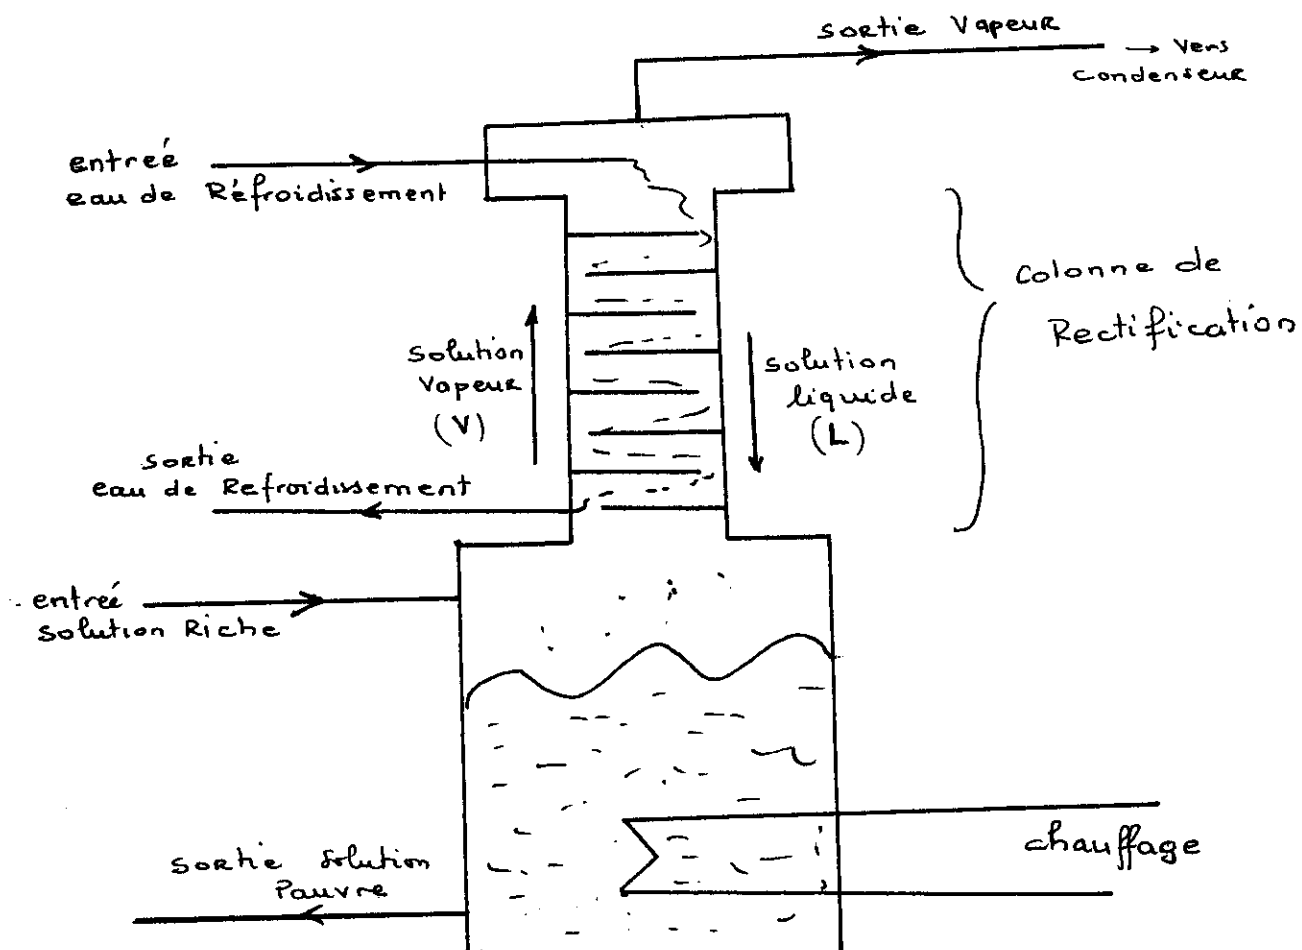 Sortie Vapeur
→ Vers
Condenseur
entreé
eau de Réfroidissement
Colonne de
Rectification
Solution
Vapeur
(V)
Solution
liquide
(L)
Sortie
eau de Refroidissement
entreé
Solution Riche
chauffage
Sortie Solution
Pauvre